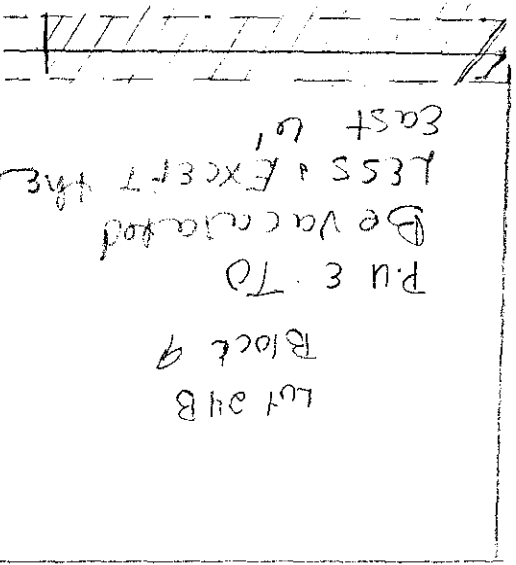 Lot 24B
Block 9
P.U.E. TO
Be Vacated
LESS & EXCEPT the
EAST 6'